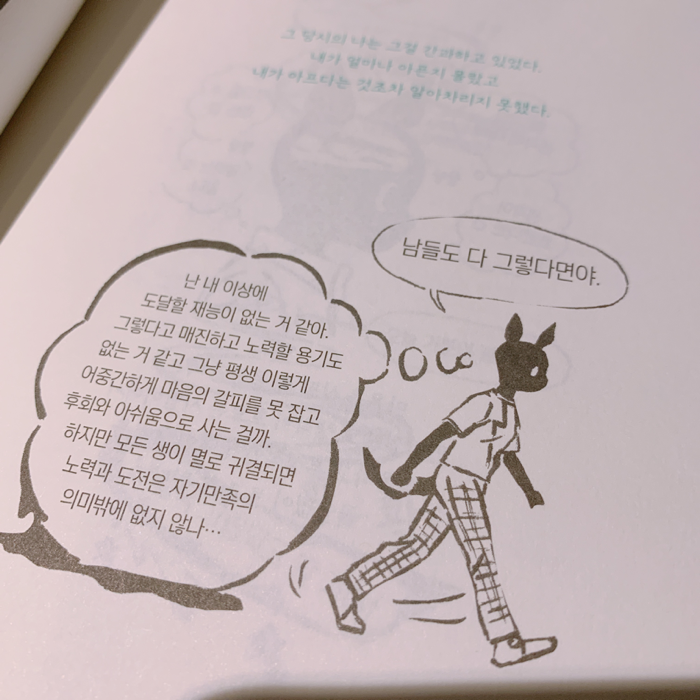 그 당시의 나는 그걸 간과하고 있었다.
내가 얼마나 아픈지 몰랐고
내가 아프다는 것조차 알아차리지 못했다.
남들도 다 그렇다면야.
난 내 이상에
도달할 재능이 없는 거 같아.
그렇다고 매진하고 노력할 용기도
없는 거 같고 그냥 평생 이렇게
어중간하게 마음의 갈피를 못 잡고
후회와 아쉬움으로 사는 걸까.
하지만 모든 생이 멸로 귀결되면
노력과 도전은 자기만족의
의미밖에 없지 않나…